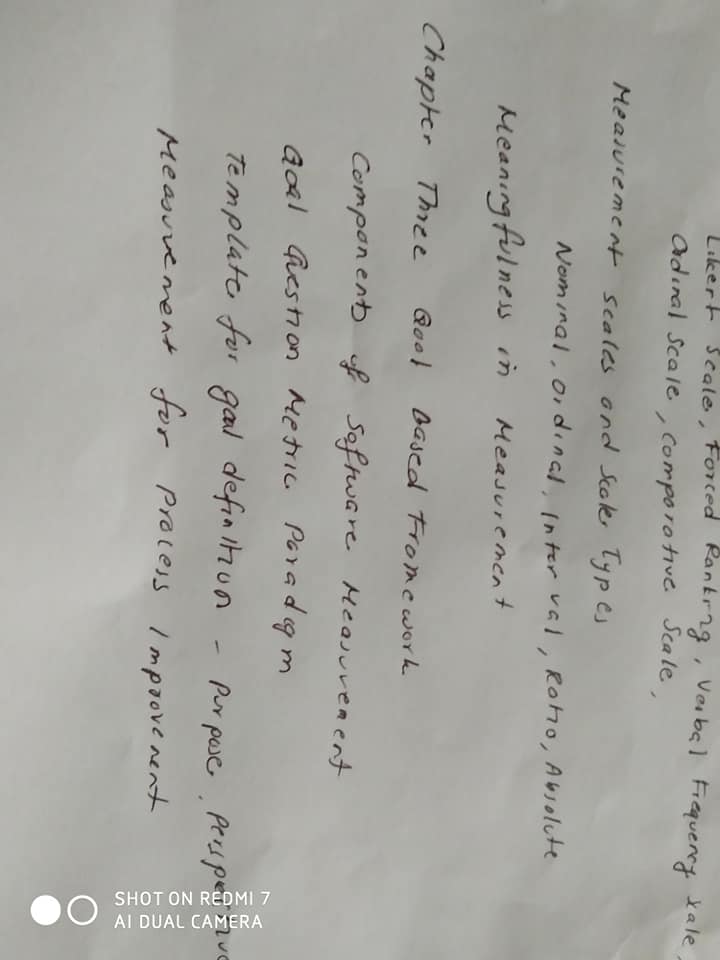 Likert Scale, Forced Ranking, Verbal Frequency Scale,
Ordinal Scale, Comparative Scale,
Measurement scales and Scale Types
Nominal, Ordinal, Interval, Ratio, Absolute
Meaningfulness in Measurement
Chapter Three Goal Based Framework
Components of Software Measurement
Goal Question Metric Paradigm
Template for goal definition - Purpose, Perspective
Measurement for Process Improvement
SHOT ON REDMI 7
AI DUAL CAMERA